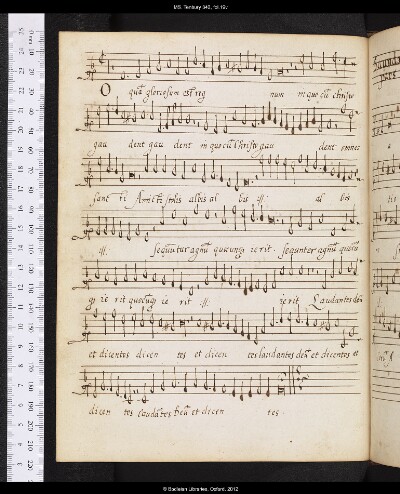 MS. Tenbury 348, fol.19v
O quā gloriosum est reg num in quo cū christo
gau dent gau dent in quo cū christo gau dent omnes
sanc ti Amicti stolis albis al bis :ij: al bis
:ij: sequūtur agnū quocunqȝ ie rit . sequuntur agnū quocū
qȝ ie rit quocūqȝ ie rit :ij: ie rit Laudantes deū
et dicentes dicen tes et dicen tes laudantes deū et dicentes et
dicen tes laudātes deū et dicen tes
© Bodleian Libraries, Oxford, 2012